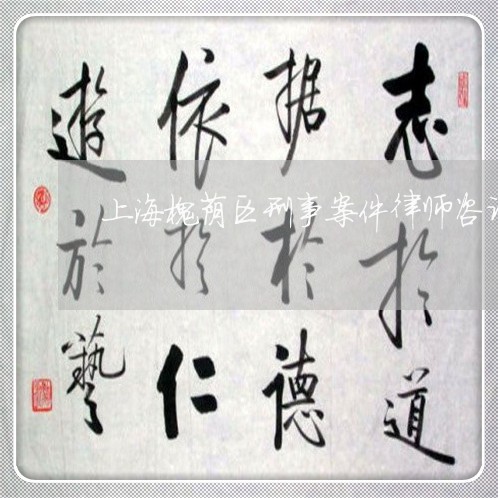 志於道
据於德
依於仁
遊於藝
上海槐荫区刑事案件律师咨